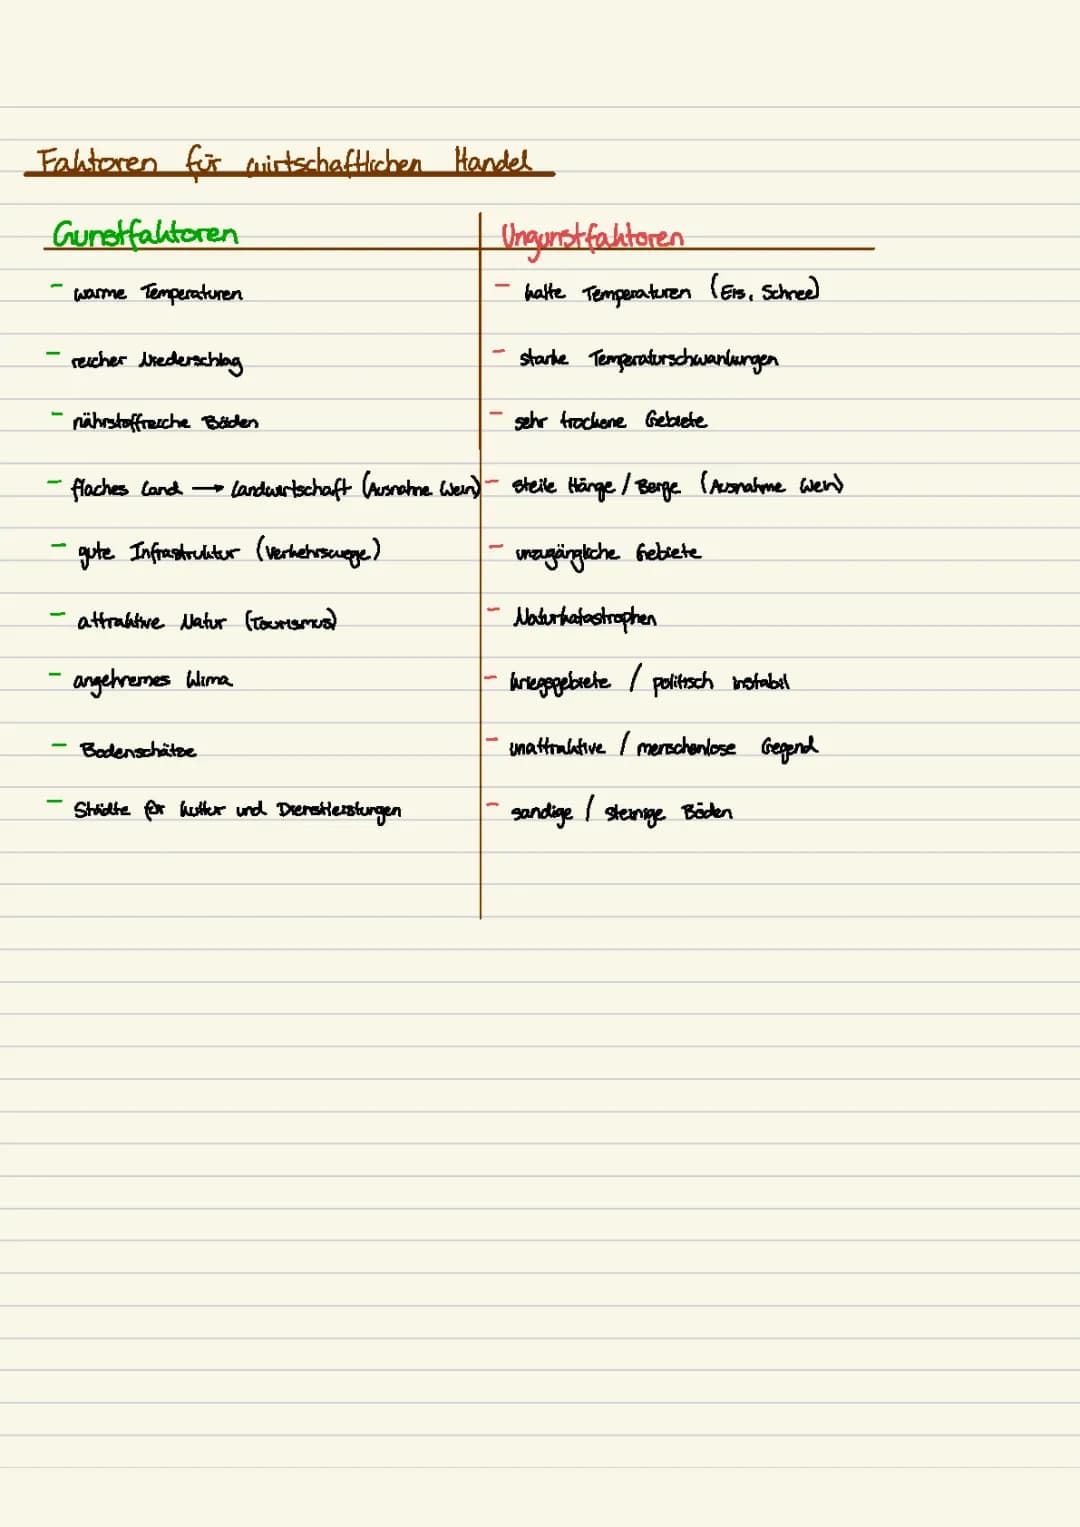 Faktoren für wirtschaftlichen Handel
Gunstfaktoren
- warme Temperaturen
- reicher Niederschlag
- nährstoffreiche Böden
- flaches Land → Landwirtschaft (Ausnahme Wein)
- gute Infrastruktur (Verkehrswege)
- attraktive Natur (Tourismus)
- angehnemes Klima
- Bodenschätze
- Städte für Kultur und Dienstleistungen
Ungunstfaktoren
- kalte Temperaturen (Eis, Schnee)
- starke Temperaturschwankungen
- sehr trockene Gebiete
- steile Hänge / Berge (Ausnahme Wein)
- unzugängliche Gebiete
- Naturkatastrophen
- Kriegsgebiete / politisch instabil
- unattraktive / menschenlose Gegend
- sandige / steinige Böden